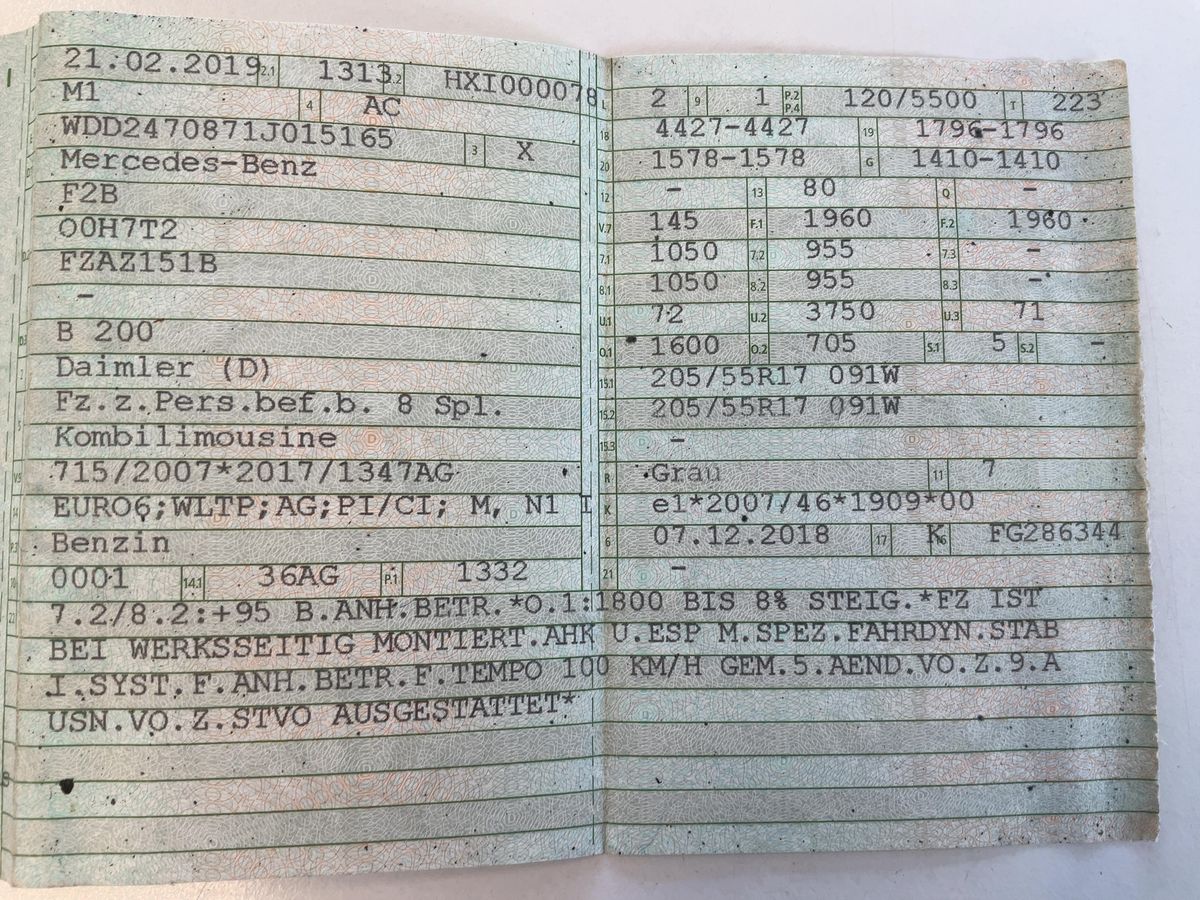 21.02.2019 2.1 1313 2.2 HXI000078
M1 4 AC
WDD2470871J015165 3 X
Mercedes-Benz
F2B
O0H7T2
FZAZ151B
–
B 200
Daimler (D)
Fz.z.Pers.bef.b. 8 Spl.
Kombilimousine
715/2007*2017/1347AG
EURO6;WLTP;AG;PI/CI; M, N1 I
Benzin
0001 14.1 36AG P.1 1332
L 2 9 1 P.2 P.4 120/5500 T 223
18 4427-4427 19 1796-1796
20 1578-1578 G 1410-1410
12 – 13 80 Q –
V.7 145 F.1 1960 F.2 1960
7.1 1050 7.2 955 7.3 –
8.1 1050 8.2 955 8.3 –
U.1 72 U.2 3750 U.3 71
O.1 1600 O.2 705 S.1 5 S.2 –
15.1 205/55R17 091W
15.2 205/55R17 091W
15.3 –
R Grau 11 7
K e1*2007/46*1909*00
6 07.12.2018 17 K 16 FG286344
21 –
22 7.2/8.2:+95 B.ANH.BETR.*O.1:1800 BIS 8% STEIG.*FZ IST
BEI WERKSSEITIG MONTIERT.AHK U.ESP M.SPEZ.FAHRDYN.STAB
I.SYST.F.ANH.BETR.F.TEMPO 100 KM/H GEM.5.AEND.VO.Z.9.A
USN.VO.Z.STVO AUSGESTATTET*